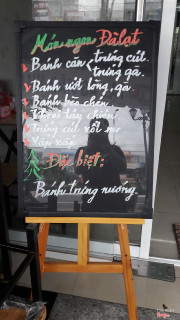 Món ngon Đàlạt
Bánh căn trứng cút.
trứng gà.
Bánh ướt lòng, gà.
Bánh bèo chén.
Khoai tây chiên.
trứng cút xốt me
Xắp xắp
Đặc biệt:
Bánh tráng nướng.